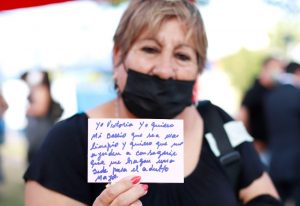 Yo Victoria Yo quiero
Mi Barrio que sea mas
limpio y quiero que nos
ayuden a conseguir
que me hagan una
sede para el adulto
mayor